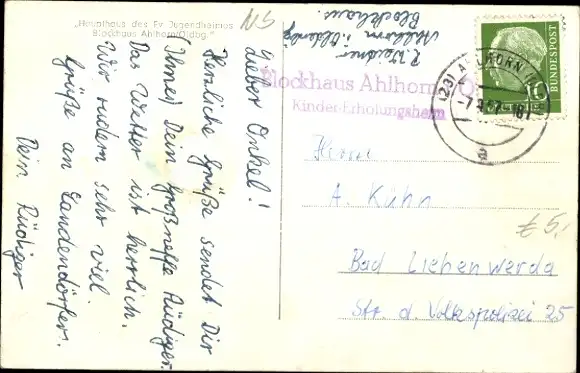 „Haupthaus des Ev. Jugendheimes
Blockhaus Ahlhorn/Oldbg."
Lieber Onkel!
Herzliche Grüße sendet Dir
(Ihnen) Dein Großneffe Rüdiger.
Das Wetter ist herrlich.
Wir rudern sehr viel.
Grüße an Landendörfers.
Dein Rüdiger
Ahlhorn i. Oldenbg.
Blockhaus.
Blockhaus Ahlhorn
Kinder-Erholungsheim
(23) AHLHORN
10
DEUTSCHE BUNDESPOST
Herrn
A. Kühn
Bad Liebenwerda
Str. d. Volkspolizei 25
€ 5,-